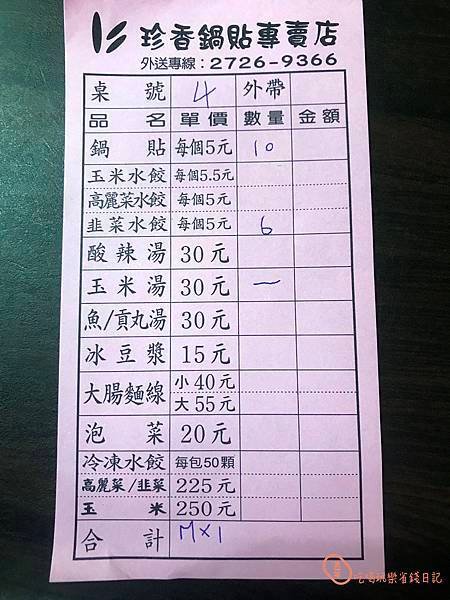 珍香鍋貼專賣店
外送專線：2726-9366
桌 號 4 外帶
品 名 單價 數量 金額
鍋 貼 每個5元 10
玉米水餃 每個5.5元
高麗菜水餃 每個5元
韭菜水餃 每個5元 6
酸辣湯 30元
玉米湯 30元 一
魚/貢丸湯 30元
冰豆漿 15元
大腸麵線 小40元
大55元
泡 菜 20元
冷凍水餃 每包50顆
高麗菜/韭菜 225元
玉 米 250元
合 計 M×1
吃喝玩樂省錢日記